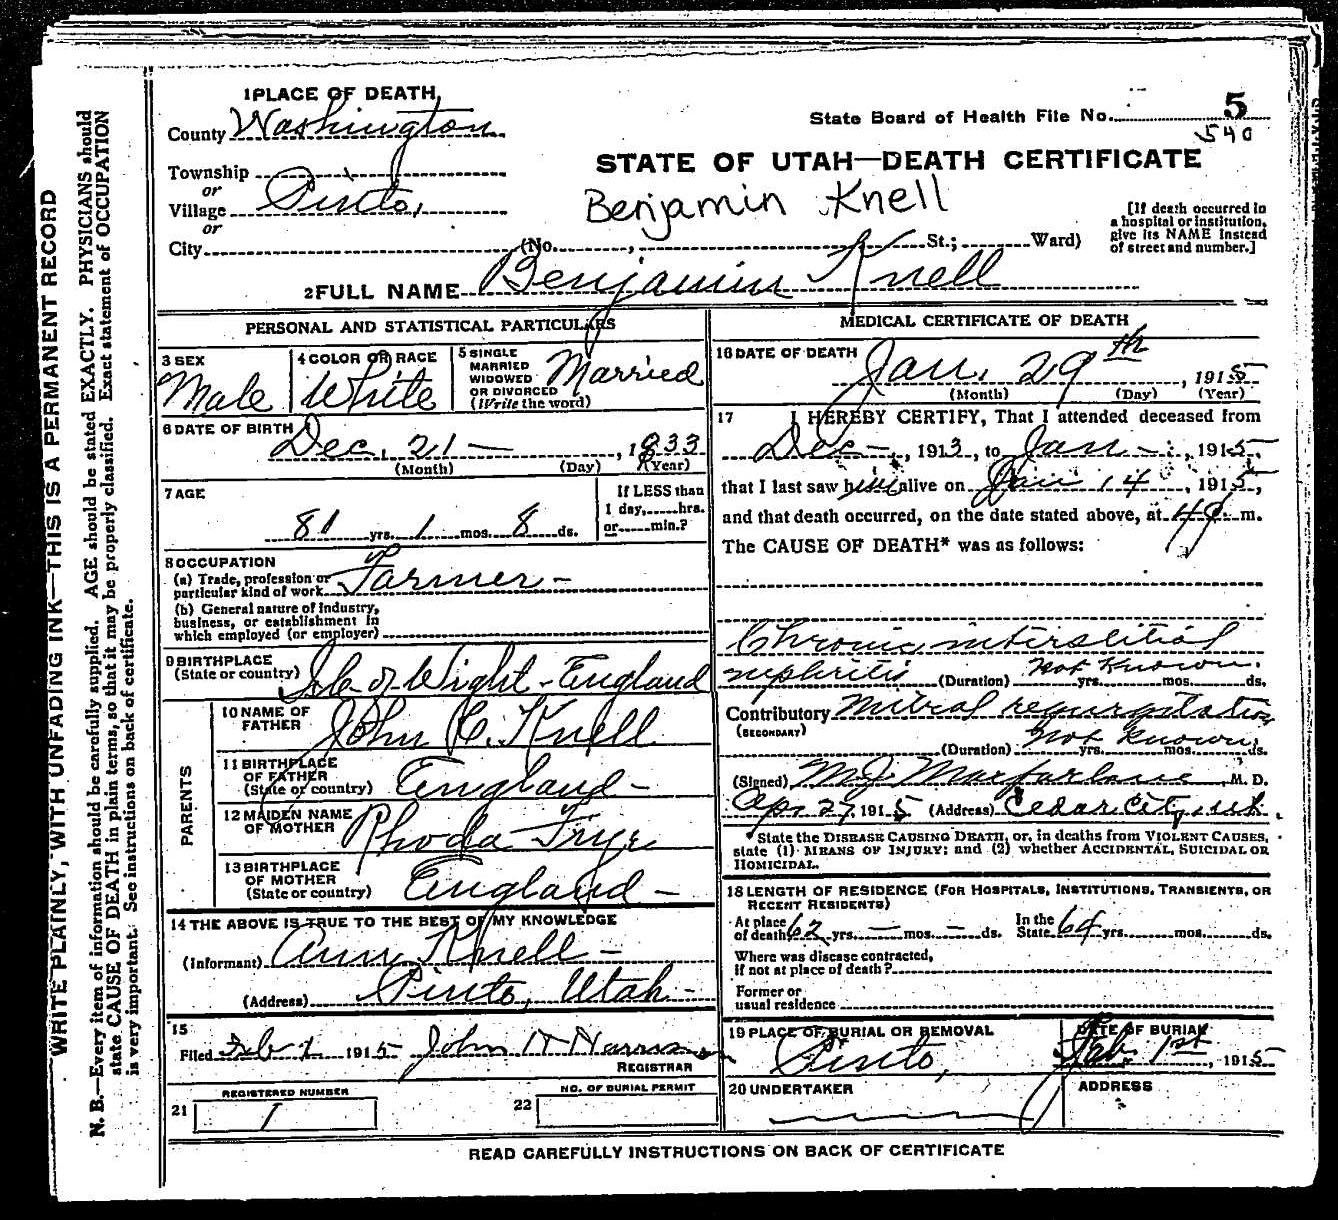 1 PLACE OF DEATH
County Washington
Township
or
Village Pinto,
or
City (No. , St.; Ward)
State Board of Health File No. 5
540
STATE OF UTAH—DEATH CERTIFICATE
Benjamin Knell
[If death occurred in
a hospital or institution,
give its NAME instead
of street and number.]
2 FULL NAME Benjamin Knell
PERSONAL AND STATISTICAL PARTICULARS
3 SEX
Male
4 COLOR OR RACE
White
5 SINGLE
MARRIED
WIDOWED
OR DIVORCED
(Write the word)
Married
6 DATE OF BIRTH
Dec. 21 — , 1833
(Month) (Day) (Year)
7 AGE
81 yrs. 1 mos. 8 ds.
If LESS than
1 day, hrs.
or min.?
8 OCCUPATION
(a) Trade, profession or
particular kind of work Farmer —
(b) General nature of Industry,
business, or establishment in
which employed (or employer)
9 BIRTHPLACE
(State or country) Isle of Wight - England
PARENTS
10 NAME OF
FATHER John C. Knell
11 BIRTHPLACE
OF FATHER
(State or country) England —
12 MAIDEN NAME
OF MOTHER Rhoda Frye
13 BIRTHPLACE
OF MOTHER
(State or country) England —
14 THE ABOVE IS TRUE TO THE BEST OF MY KNOWLEDGE
(Informant) Ann Knell —
(Address) Pinto, Utah —
15
Filed Feb 1 1915 John H Harrison
REGISTRAR
21 REGISTERED NUMBER
1
22 NO. OF BURIAL PERMIT
MEDICAL CERTIFICATE OF DEATH
16 DATE OF DEATH
Jan. 29th , 1915
(Month) (Day) (Year)
17 I HEREBY CERTIFY, That I attended deceased from
Dec — , 1913, to Jan — , 1915,
that I last saw him alive on Jan 14 , 1915,
and that death occurred, on the date stated above, at m.
The CAUSE OF DEATH* was as follows:
Chronic interstitial
nephritis (Duration) Not Known. yrs. mos. ds.
Contributory Mitral regurgitation
(SECONDARY)
(Duration) Not Known. yrs. mos. ds.
(Signed) M J Macfarlane, M. D.
Apr 27, 1915 (Address) Cedar City, Ut.
State the DISEASE CAUSING DEATH, or, in deaths from VIOLENT CAUSES,
state (1) MEANS OF INJURY; and (2) whether ACCIDENTAL, SUICIDAL OR
HOMICIDAL.
18 LENGTH OF RESIDENCE (FOR HOSPITALS, INSTITUTIONS, TRANSIENTS, OR
RECENT RESIDENTS)
At place
of death 62 yrs. — mos. — ds.
In the
State 64 yrs. mos. ds.
Where was disease contracted,
if not at place of death?
Former or
usual residence
19 PLACE OF BURIAL OR REMOVAL
Pinto,
DATE OF BURIAL
Feb. 1st, 1915
20 UNDERTAKER
ADDRESS
READ CAREFULLY INSTRUCTIONS ON BACK OF CERTIFICATE
WRITE PLAINLY, WITH UNFADING INK—THIS IS A PERMANENT RECORD
N. B.—Every item of information should be carefully supplied. AGE should be stated EXACTLY. PHYSICIANS should
state CAUSE OF DEATH in plain terms, so that it may be properly classified. Exact statement of OCCUPATION
is very important. See instructions on back of certificate.